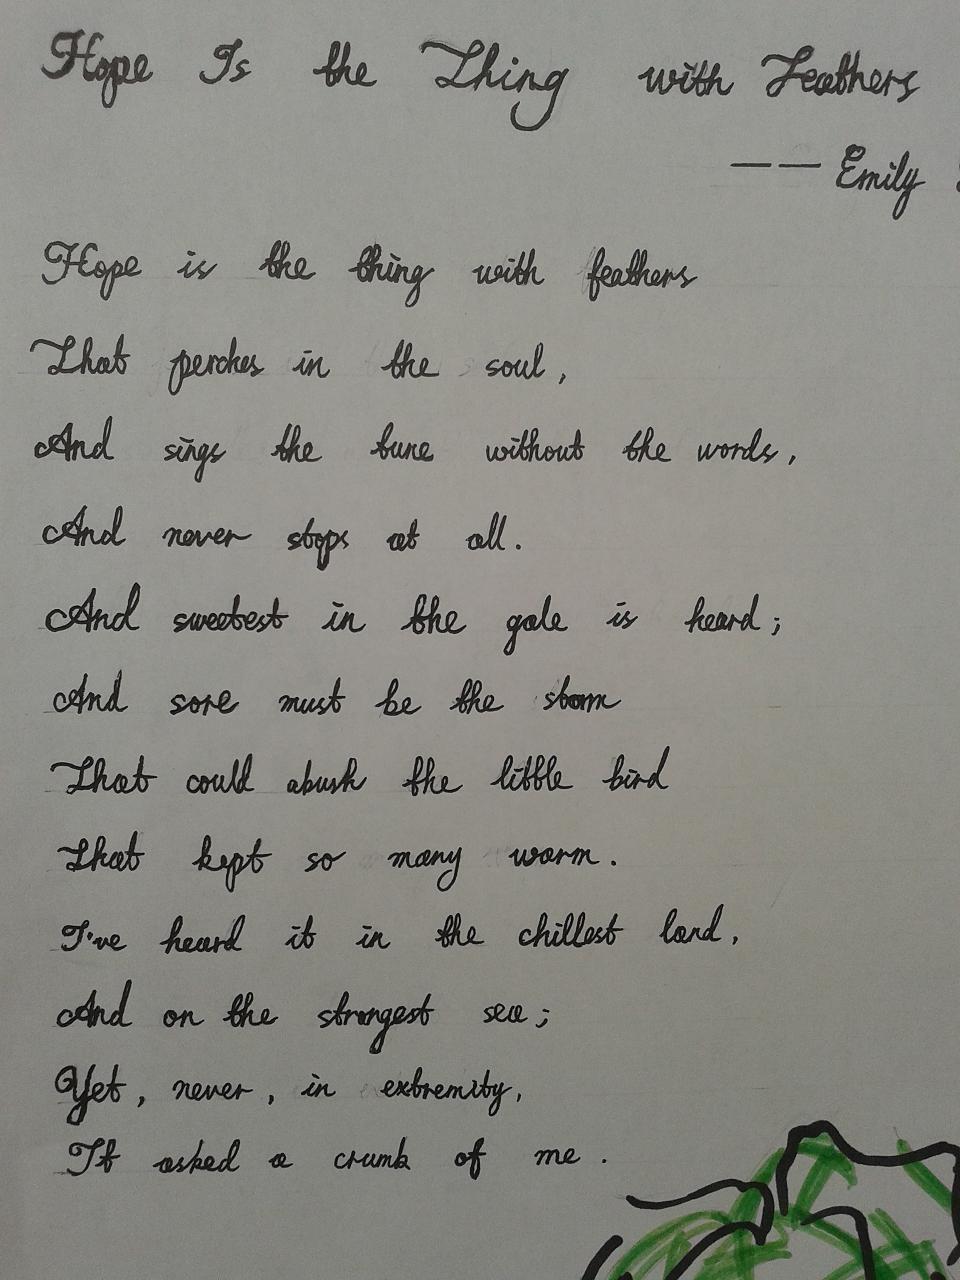 Hope Is the Thing with Feathers
—— Emily
Hope is the thing with feathers
That perches in the soul,
And sings the tune without the words,
And never stops at all.
And sweetest in the gale is heard;
And sore must be the storm
That could abush the little bird
That kept so many warm.
I've heard it in the chillest land,
And on the strongest sea;
Yet, never, in extremity,
It asked a crumb of me.